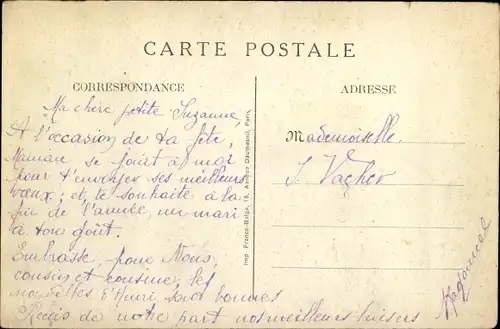 CARTE POSTALE
CORRESPONDANCE
ADRESSE
Ma chère petite Suzanne,
A l'occasion de ta fête,
Maman se joint à moi
pour t'envoyer ses meilleurs
vœux; et te souhaite à la
fin de l'année, un mari
à ton goût.
Embrasse pour Nous,
cousin et cousine, les
nouvelles d'Henri sont bonnes
Reçois de notre part nos meilleurs baisers
Mademoiselle
S. Vacher
Imp. Franco-Belge, 18, Avenue Daumesnil, Paris.